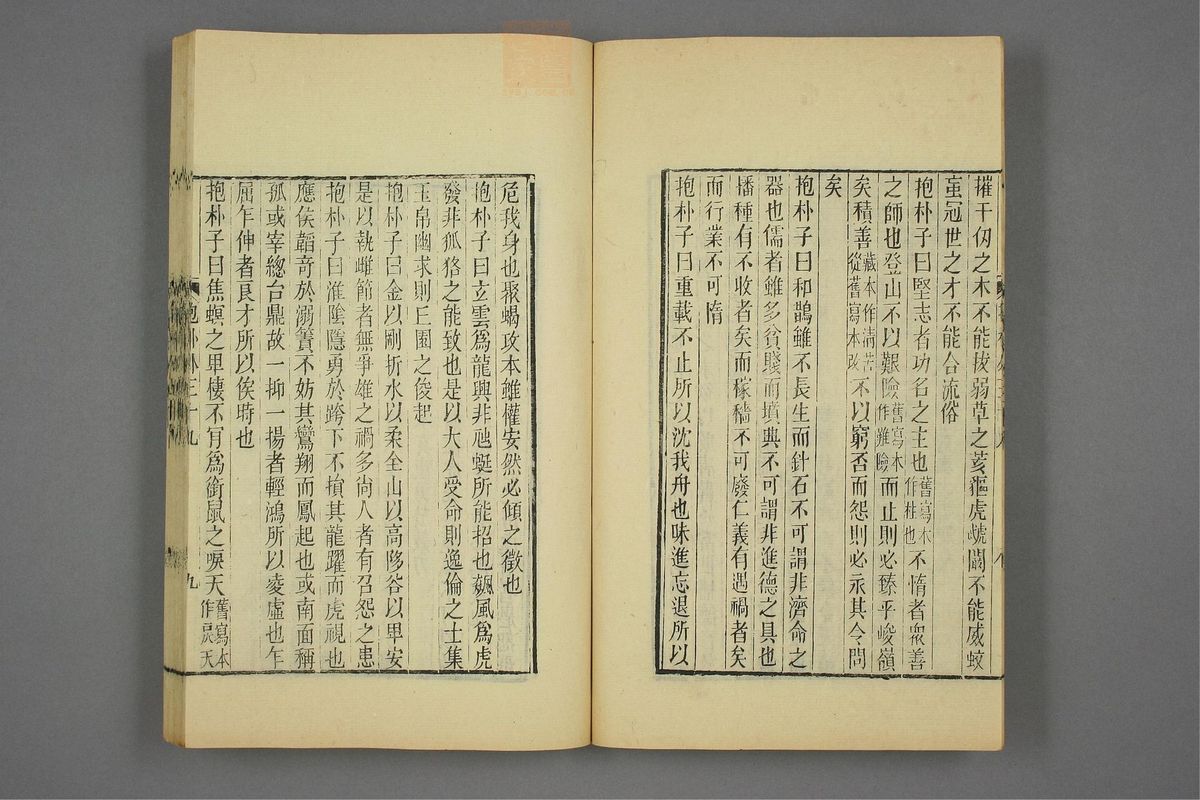 摧千仞之木不能拔弱草之荄貙虎虓闞不能威蚊
䖟冠世之才不能合流俗
抱朴子曰堅志者功名之主也舊寫本作柱也不惰者衆善
之師也登山不以艱險舊寫本作難險而止則必臻乎峻嶺
矣積善藏本作清苦從舊寫本改不以窮否而怨則必永其令問
矣
抱朴子曰和鵲雖不長生而針石不可謂非濟命之
器也儒者雖多貧賤而墳典不可謂非進德之具也
播種有不收者矣而稼穡不可廢仁義有遇禍者矣
而行業不可惰
抱朴子曰重載不止所以沈我舟也味進忘退所以
危我身也聚蝎攻本雖權安然必傾之徵也
抱朴子曰立雲爲龍興非虺蜓所能招也飇風爲虎
發非狐狢之能致也是以大人受命則逸倫之士集
玉帛幽求則丘園之俊起
抱朴子曰金以剛折水以柔全山以高陊谷以卑安
是以執雌節者無爭雄之禍多尚人者有召怨之患
抱朴子曰淮陰隱勇於跨下不損其龍躍而虎視也
應侯韜奇於溺簀不妨其鸞翔而鳳起也或南面稱
孤或宰總台鼎故一抑一揚者輕鴻所以凌虛也乍
屈乍伸者良才所以俟時也
抱朴子曰焦螟之卑棲不肯爲銜鼠之唳天舊寫本作淚天
抱朴外三十九
九